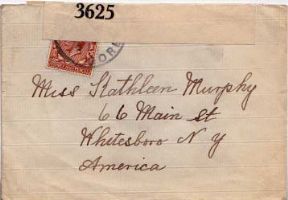 3625
ORE
Miss Kathleen Murphy
66 Main st
Whitesboro N Y
America